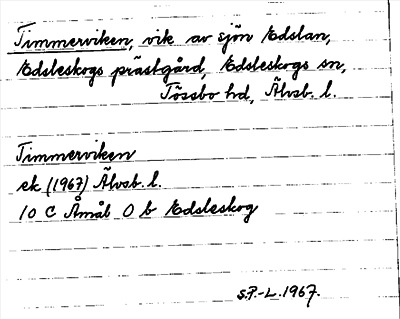 Timmerviken, vik av sjön Edslan,
Edsleskogs prästgård, Edsleskogs sn,
Tössbo hd, Älvsb. l.
Timmerviken
ek (1967) Älvsb. l.
10 C Åmål O b Edsleskog
S.P.-L. 1967.